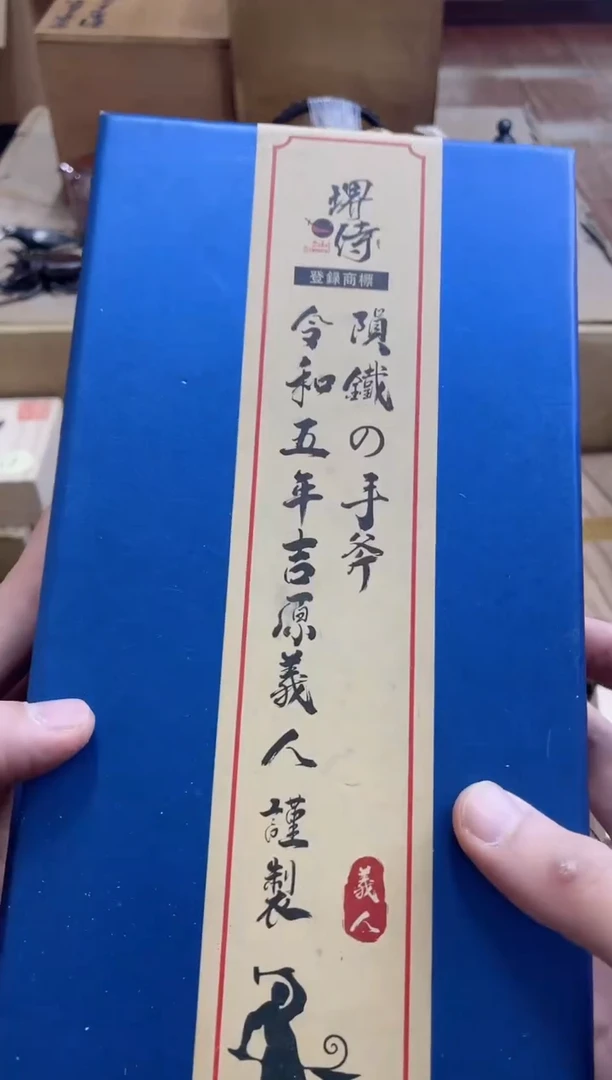 堺
侍
登録商標
隕鐵の手斧
令和五年吉原義人 謹製
義人